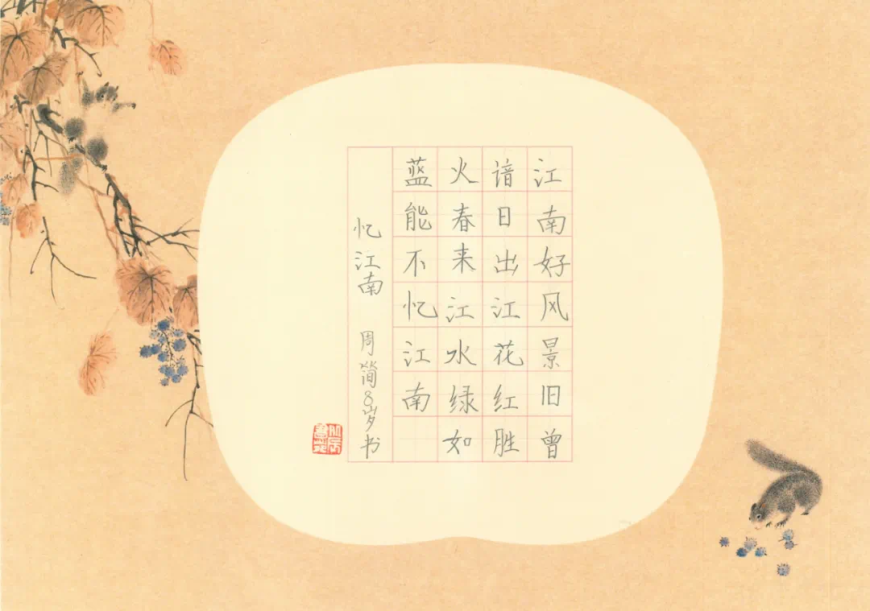 江南好风景旧曾
谙日出江花红胜
火春来江水绿如
蓝能不忆江南
忆江南 周简8岁书